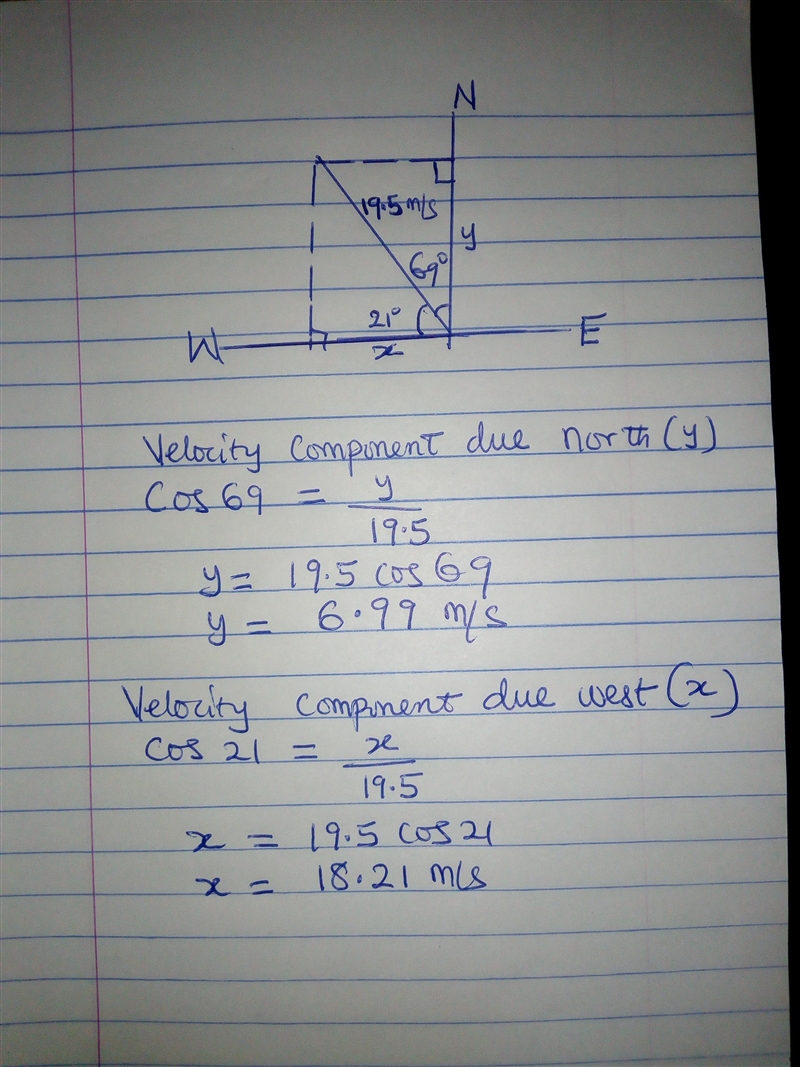 N
19.5 m/s
y
69°
21°
W
E
x
Velocity Component due north (y)
Cos 69 = y
19.5
y = 19.5 cos 69
y = 6.99 m/s
Velocity component due west (x)
cos 21 = x
19.5
x = 19.5 cos 21
x = 18.21 m/s